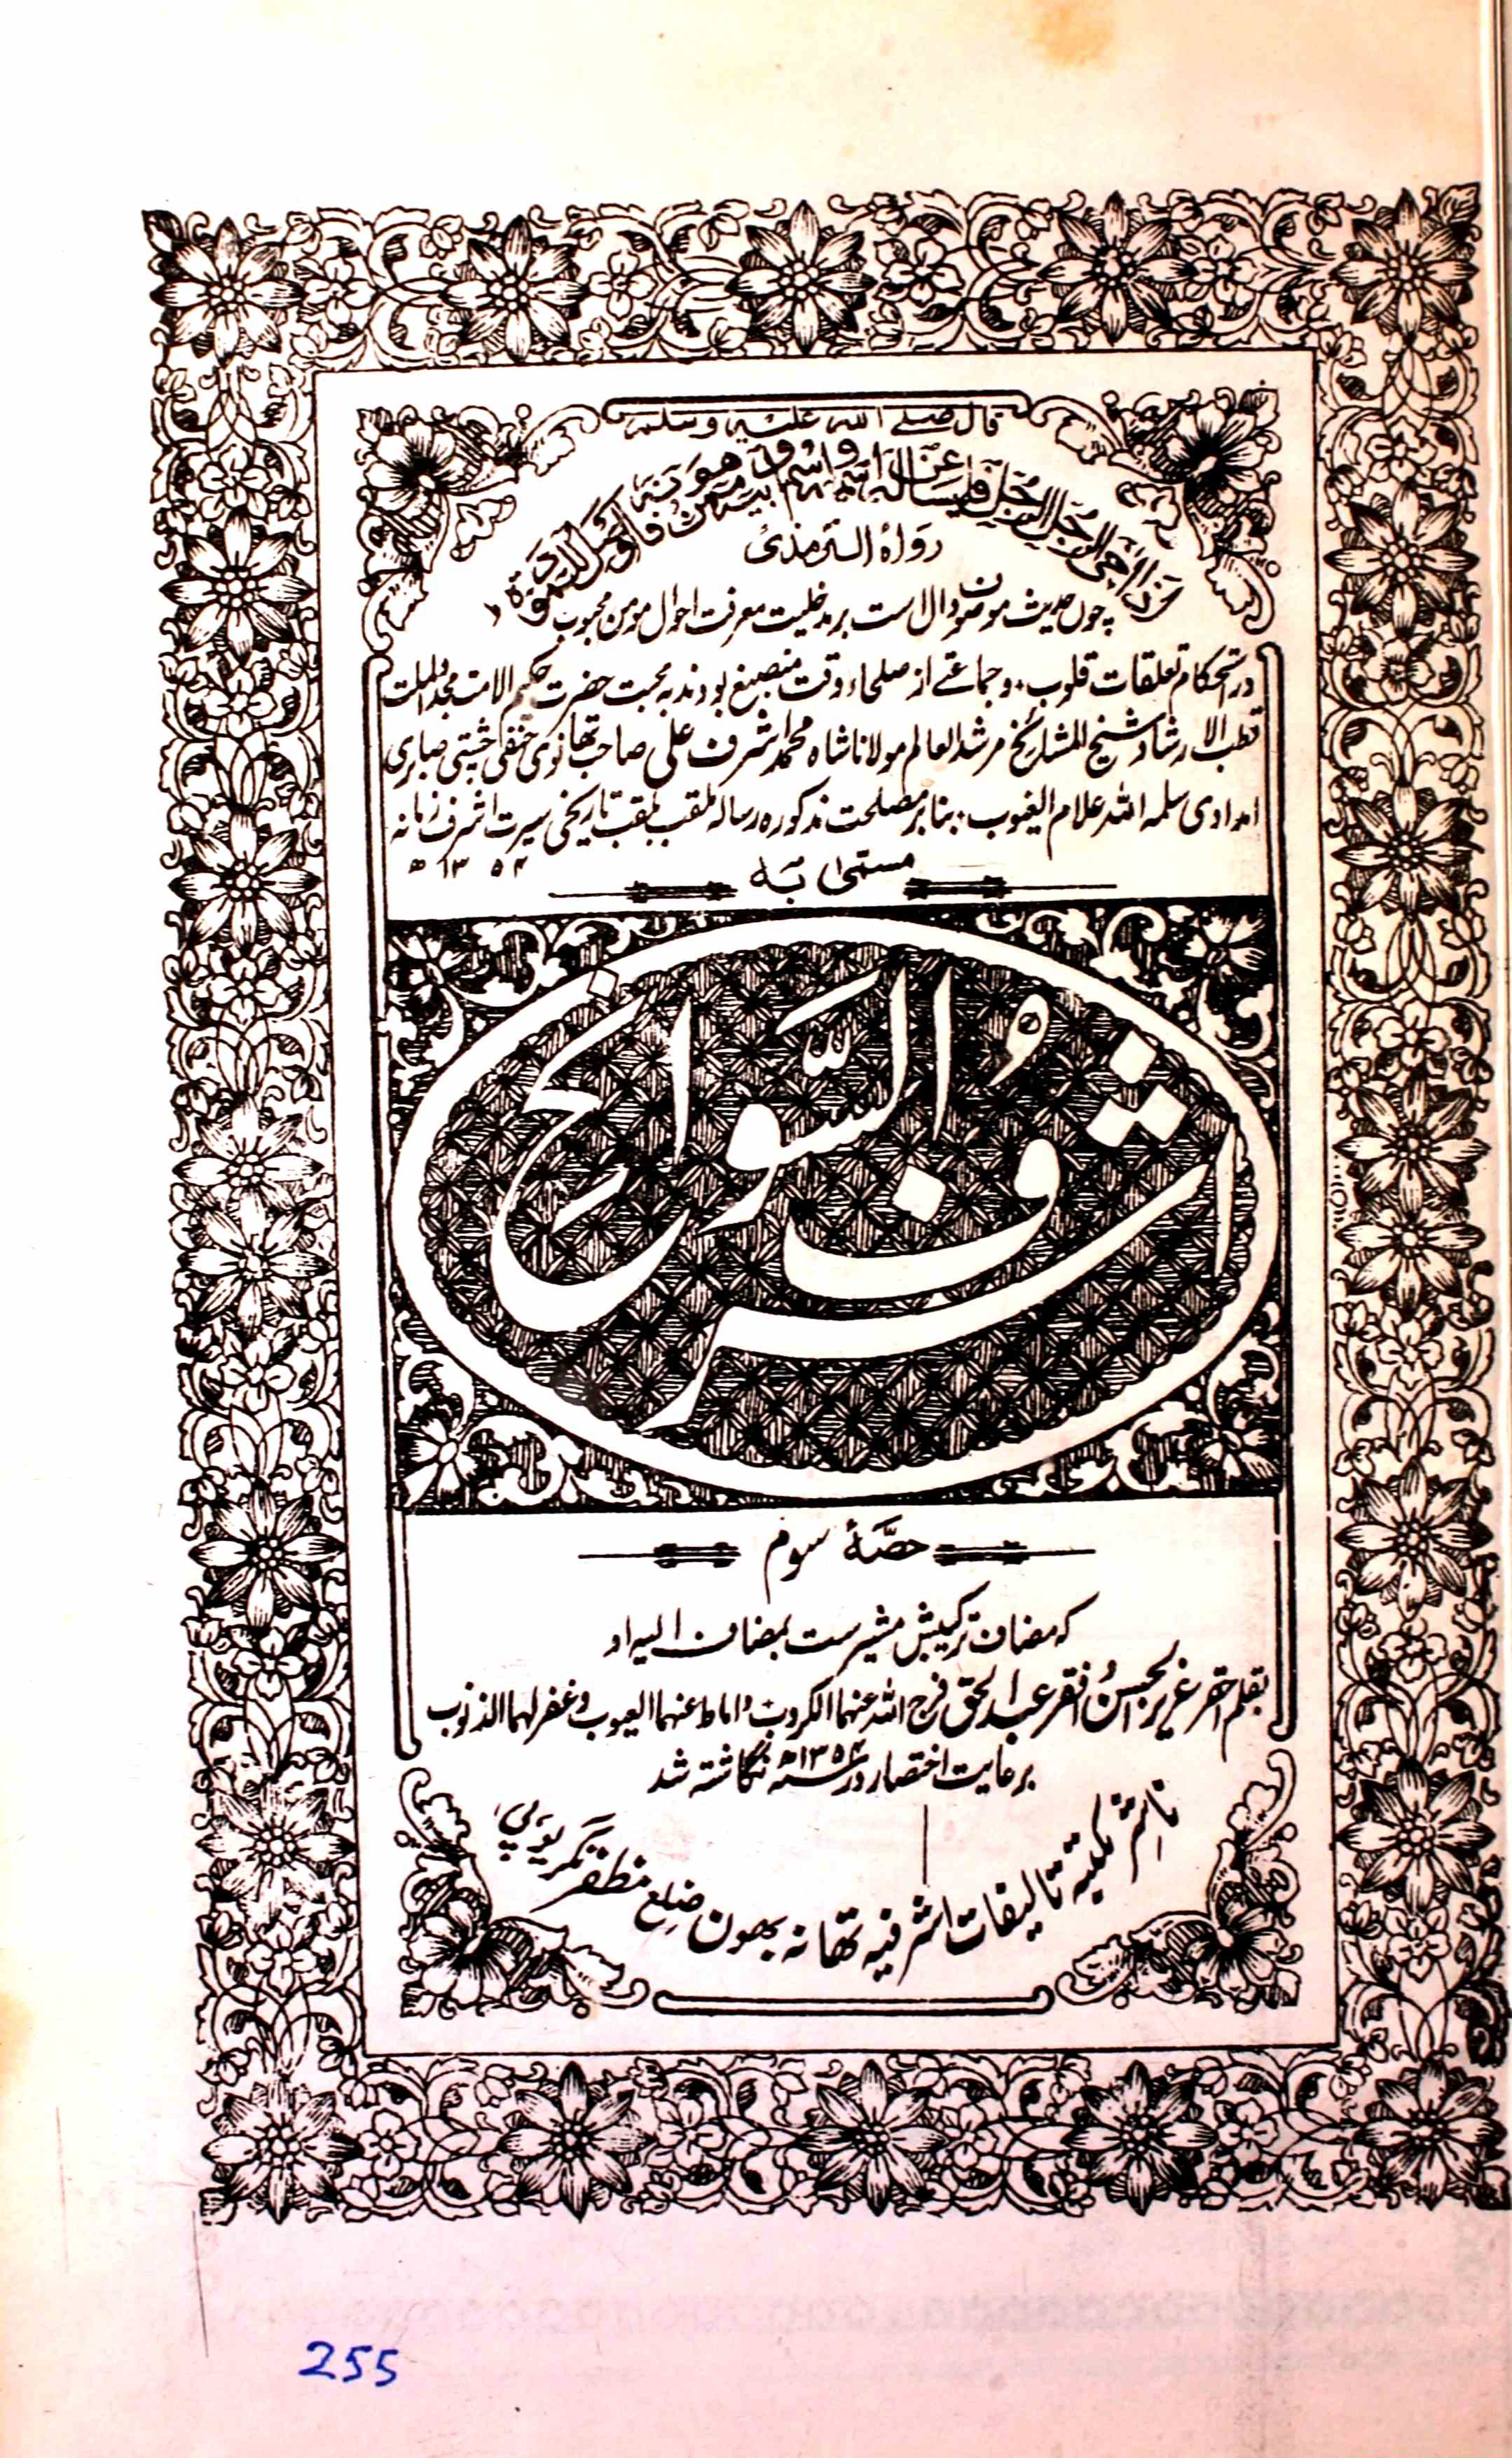 قال صلے اللہ علیہ وسلم
اذا آخى الرجل الرجل فليسأله عن اسمه واسم ابيه وممن هو فانه اوصل للمودة
رواه الترمذي
چوں حدیث موصوف دال است بر مدخلیت معرفت احوال مومن محبوب
در استحکام تعلقات قلوب، و جماعتے از صلحاء وقت منصبغ بودند بہ محبت حضرت حکیم الامت مجدد الملت
قطب الارشاد شیخ المشائخ مرشد العالم مولانا شاہ محمد اشرف علی صاحب تھانوی حنفی چشتی صابری
امدادی سلمہ اللہ علام الغیوب، بنا بر مصلحت مذکورہ رسالہ ملقب بلقب تاریخی سیرت اشرف زمانہ
۱۳۵۴ھ
مسمّٰی بہ
اشرفُ السَّوانح
حصّۂ سوم
کہ مضاف ترکیبش مشیرست بمضاف الیہ او
بقلم احقر عزیز الحسن و افقر عبد الحق فرج اللہ عنہما الکروب و اماط عنہما العیوب و غفر لہما الذنوب
برعایت اختصار در ۱۳۵۴ھ نگاشتہ شد
ناشر مکتبہ تالیفات اشرفیہ تھانہ بھون ضلع مظفر نگر یوپی
255